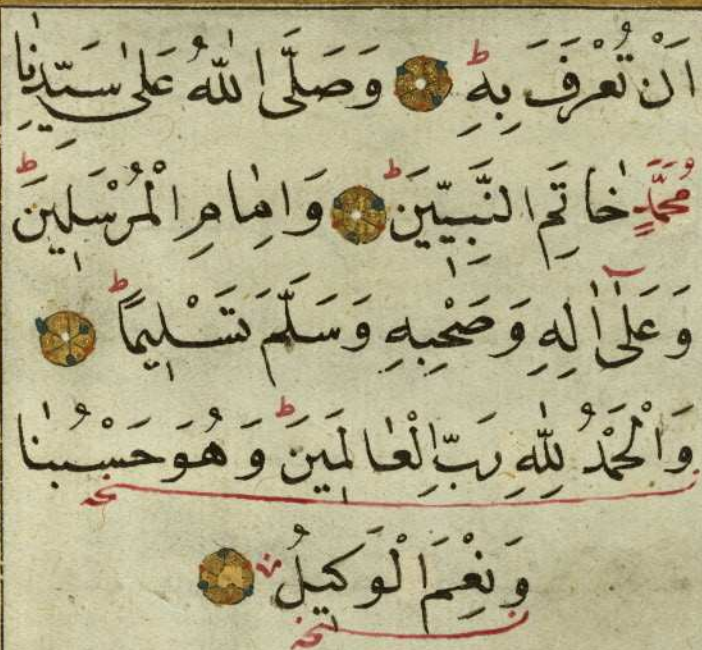 اَنْ تُعْرَفَ بِهٖ ط وَصَلَّى اللّٰهُ عَلٰى سَيِّدِنَا
مُحَمَّدٍ خَاتَمِ النَّبِيّٖنَ ط وَاِمَامِ الْمُرْسَلٖينَ ط
وَعَلٰٓى اٰلِهٖ وَصَحْبِهٖ وَسَلَّمَ تَسْلٖيمًا ط
وَالْحَمْدُ لِلّٰهِ رَبِّ الْعَالَمٖينَ ط وَهُوَ حَسْبُنَا
وَنِعْمَ الْوَكٖيلُ